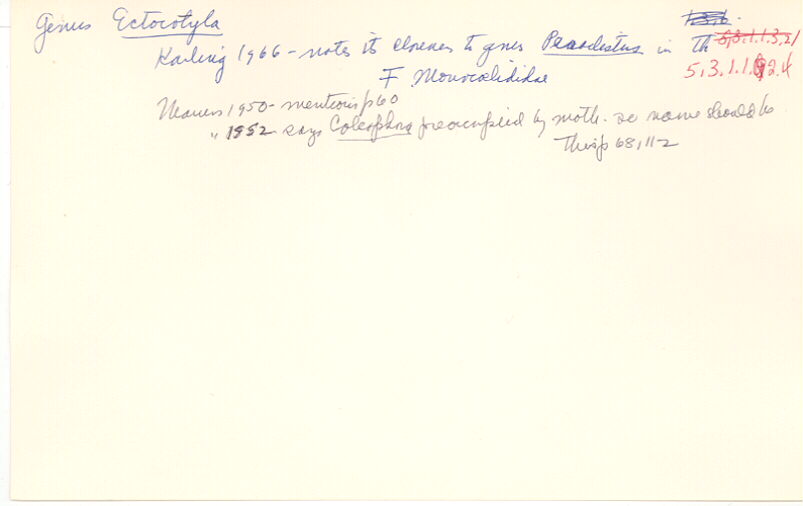 Genus Ectocotyla
Karling 1966 - notes its closeness to genus Peraclistus in Th
F. Monocelididae
5,3.1.1.3,21
5,3.1.1.2.4
Marcus 1950 - mentions p60
" 1952 - says Coleophora preoccupied by moth - so name should be
This p 68, 11-2